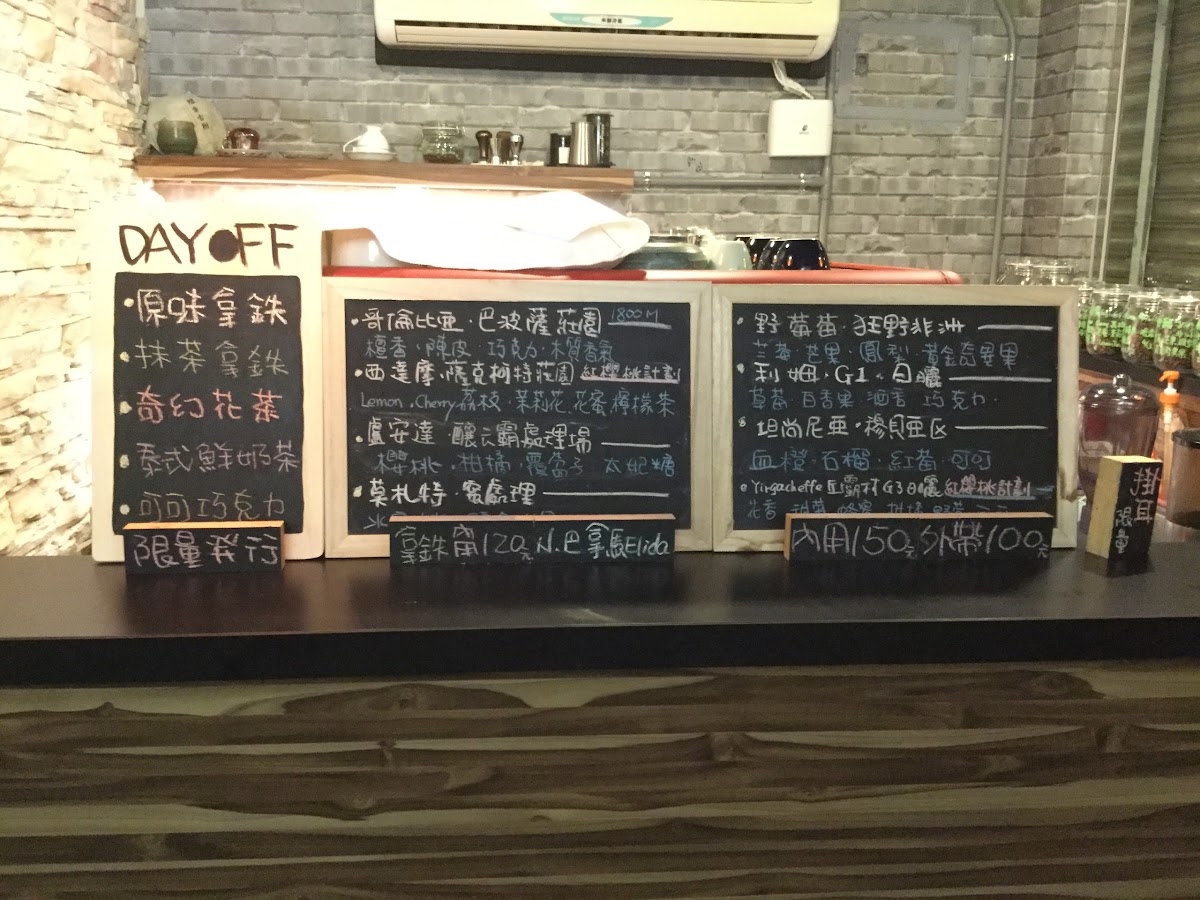 DAY OFF
原味拿鉄
抹茶拿鉄
奇幻花茶
泰式鮮奶茶
可可巧克力
限量發行
哥倫比亞・巴波薩莊園 1800M
檀香・陳皮・巧克力・木質香氣
西達摩・薩克柯特莊園 紅櫻桃計劃
Lemon・Cherry 荔枝・茉莉花・花蜜檸檬茶
盧安達・釀云霸處理場
櫻桃・柑橘・覆盆子 太妃糖
莫札特・蜜處理
拿鉄 120元 N.巴拿馬Elida
野莓莓・狂野非洲
芒果・鳳梨・黃金奇異果
利姆・G1・日曬
草莓 百香果・酒香 巧克力
坦尚尼亞・楊貝亞区
血橙・石榴・紅莓・可可
Yirgacheffe G3日曬 紅櫻桃計劃
花香
內用150元外帶100元
掛耳
限量